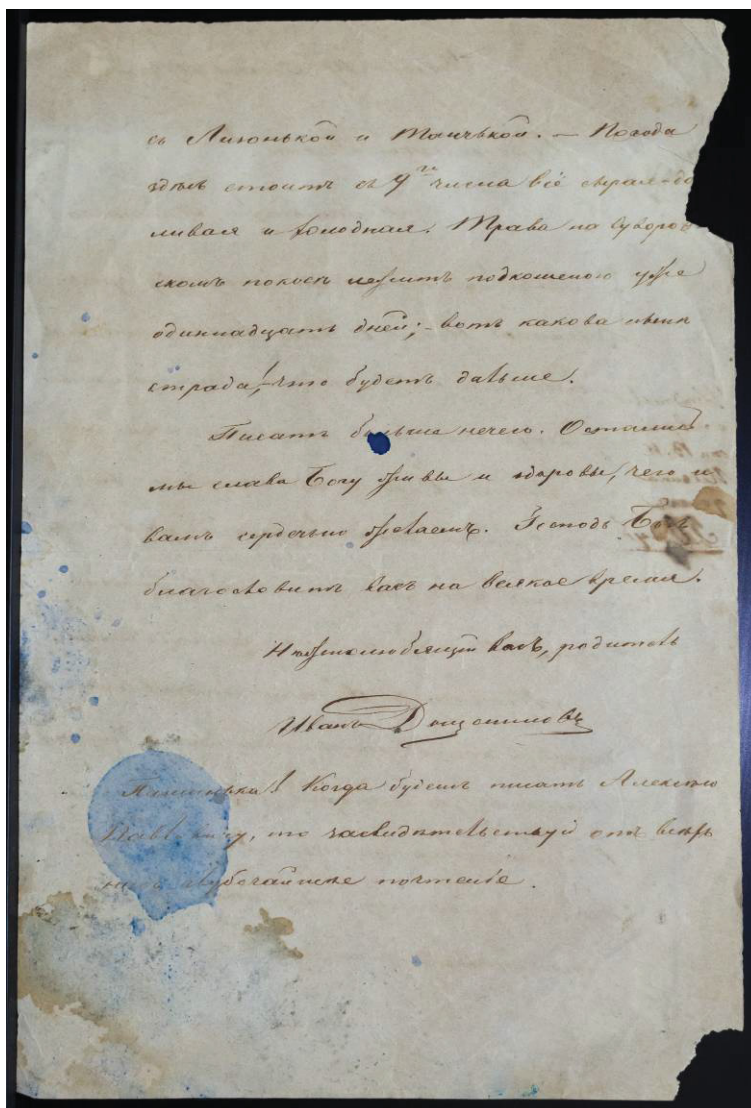 съ Лизонькой и Таничькой. — Погода
здѣсь стоитъ съ 9го числа всё сырая-до
ждливая и холодная. Трава на
скомъ покосѣ лежитъ подкошеною уже
одиннадцать дней; - вотъ какова нынѣ
страда! - что будетъ дальше.
Писать больше нечего. Остаемся
мы слава Богу живы и здоровы, чего и
вамъ сердечно желаемъ. Господь Богъ
благословитъ васъ на всякое время.
Нѣжнолюбящій васъ, родитель
Иванъ
Когда будешь писать Алексѣю
то засвидѣтельствуй отъ всѣхъ
насъ глубочайшее почтеніе.